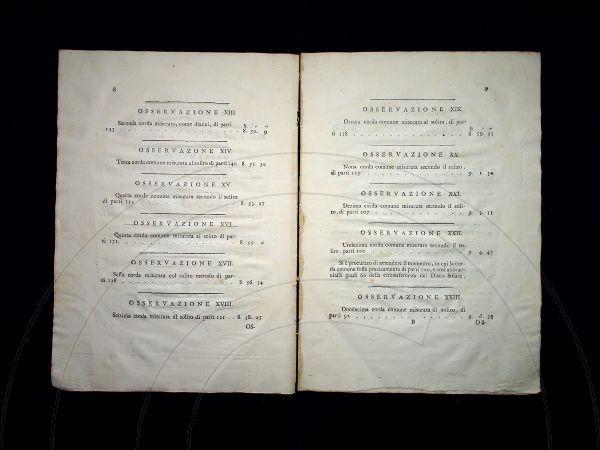 8
OSSERVAZIONE XIII.
Seconda corda misurata, come dianzi, di parti
143 . . . . . . . . . . . . . . 8. 50. 9
OSSERVAZONE XIV.
Terza corda comune misurata al solito di parti 140 8. 51. 50
OSSERVAZIONE XV.
Quarta corda comune misurata secondo il solito
di parti 135 . . . . . . . . . . . 8. 53. 27
OSSERVAZIONE XVI.
Quinta corda comune misurata al solito di par-
ti 131. . . . . . . . . . . . . 8. 55. 0
OSSERVAZIONE XVII.
Sesta corda misurata col solito metodo di par-
ti 128 . . . . . . . . . . . . . 8. 56. 14
OSSERVAZIONE XVIII.
Settima corda misurata al solito di parti 121 . . 8. 58. 25
OS-
9
OSSERVAZIONE XIX.
Ottava corda comune misurata al solito, di par-
ti 118 . . . . . . . . . . . . . 8. 59. 51
OSSERVAZIONE XX.
Nona corda comune misurata secondo il solito,
di parti . . . . . . . . . . . . 9. 1. 50
OSSERVAZIONE XXI.
Decima corda comune misurata secondo il so-
lito, di parti 107 . . . . . . . . . . 9. 3. 11
OSSERVAZIONE XXII.
Undecima corda comune misurata secondo il so-
lito, parti 100 . . . . . . . . . . 9. 4. 45
Si è procurato di attendere il momento, in cui la cor-
da comune fosse precisamente di parti 100, e così abbrac-
ciasse gradi 60 della circonferenza del Disco Solare.
OSSERVAZIONE XXIII.
Duodecima corda comune misurata al solito, di
parti 92 . . . . . . . . . . . . 9. 6.
B OS-